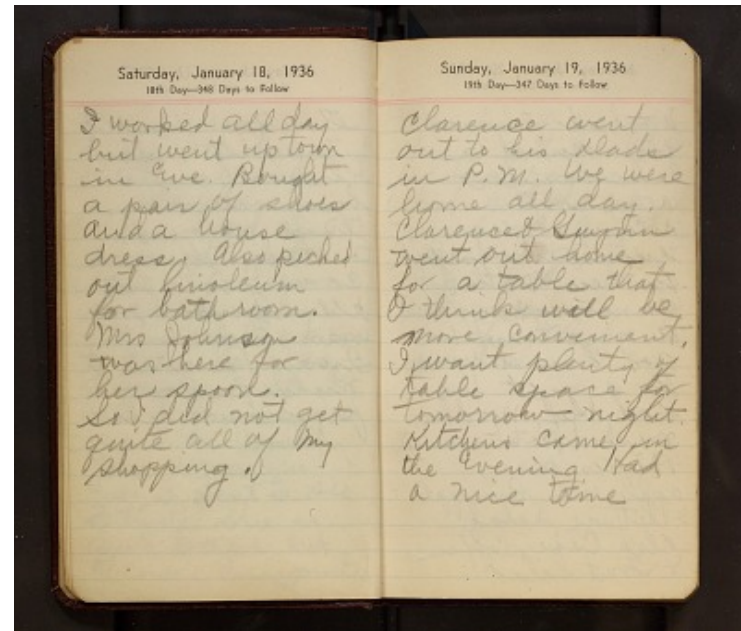 Saturday, January 18, 1936
18th Day—348 Days to Follow
I worked all day
but went up town
in Eve. Bought
a pair of shoes
and a house
dress. Also picked
out linoleum
for bathroom.
Mrs Johnson
was here for
her spoon.
So I did not get
quite all of my
shopping.
Sunday, January 19, 1936
19th Day—347 Days to Follow
Clarence went
out to his Dads
in P.M. We were
home all day.
Clarence &
went out home
for a table that
I think will be
more convenient.
I want plenty of
table space for
tomorrow night.
Kitchens came in
the Evening Had
a nice time